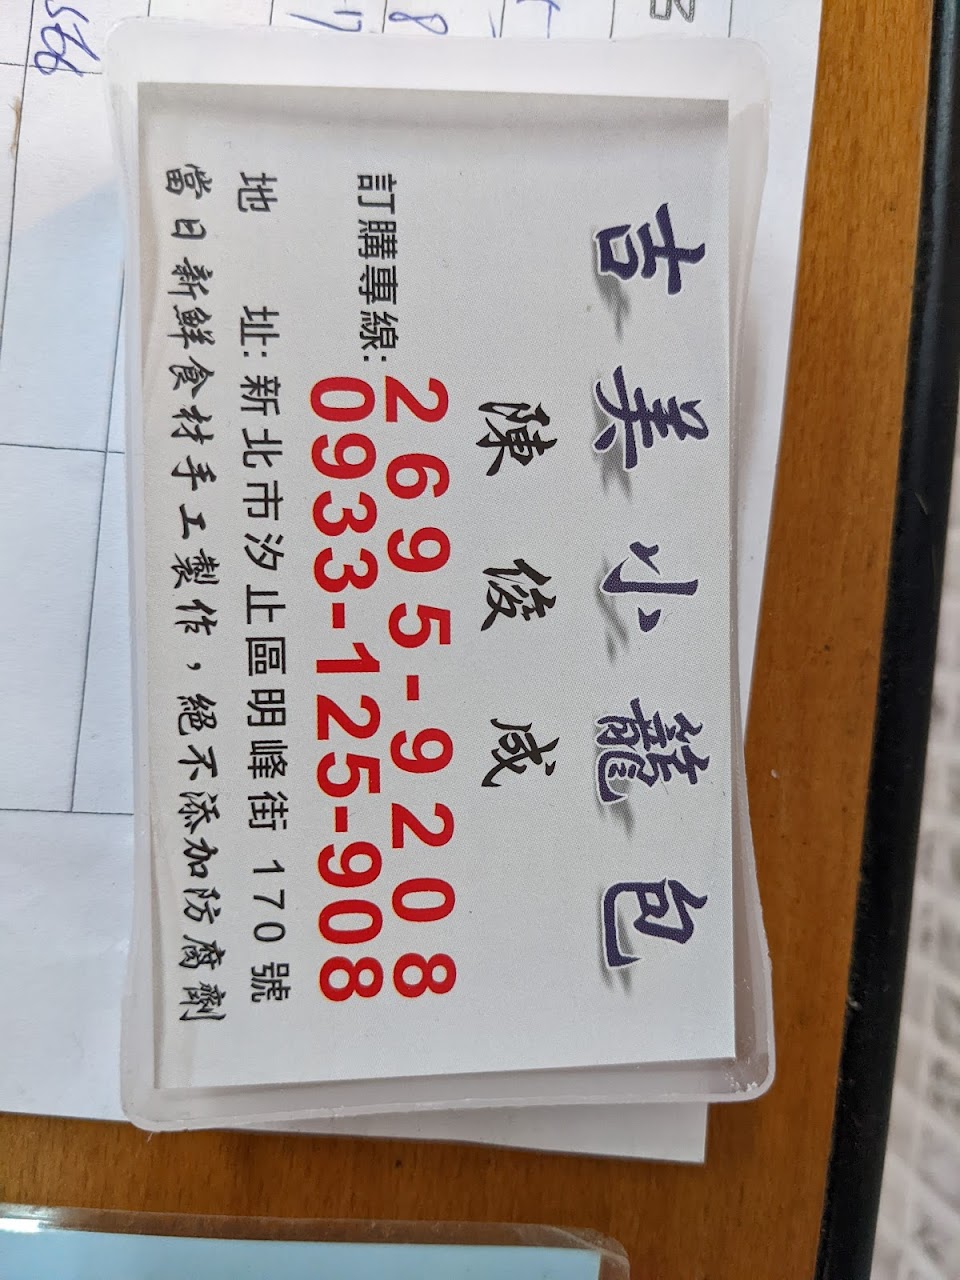 吉美小籠包
陳俊威
訂購專線: 2695-9208
0933-125-908
地 址: 新北市汐止區明峰街 170 號
當日新鮮食材手工製作，絕不添加防腐劑